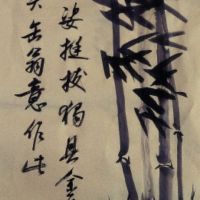 姿挺拔独具金
缶翁意作此